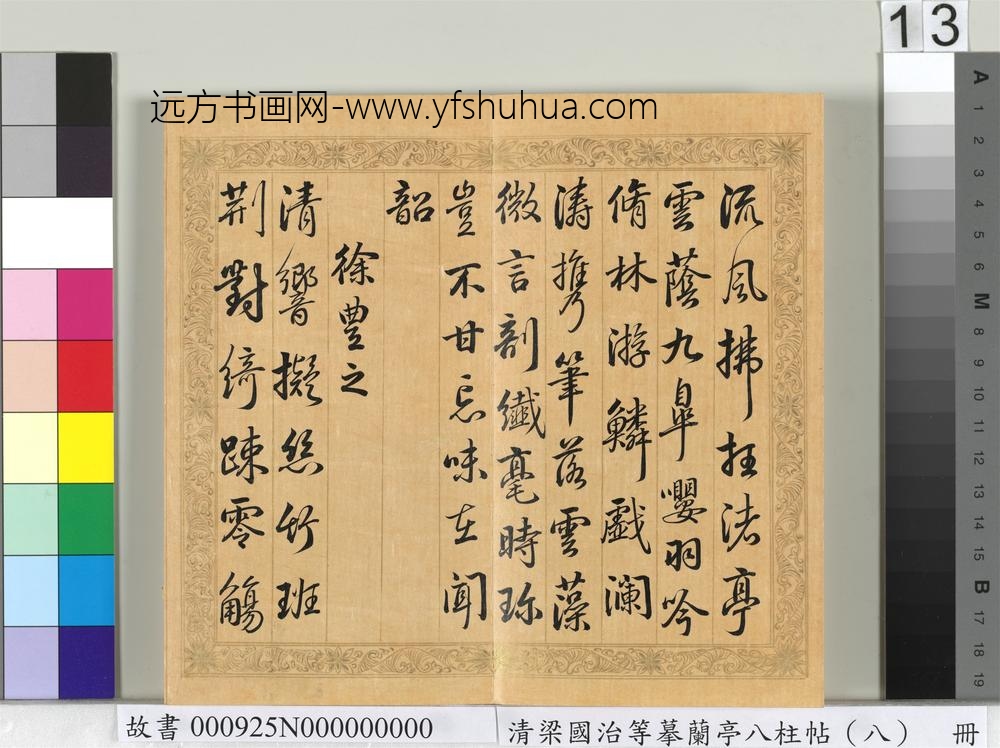 13
远方书画网-www.yfshuhua.com
流風拂抂渚亭
雲蔭九皐嚶羽吟
脩林游鱗戱瀾
濤攜筆落雲藻
微言剖纖毫時珎
豈不甘忘味在聞
韶
徐豊之
清響擬絲竹班
荆對綺踈零觴
A 1 2 3 4 5 6 M 8 9 10 11 12 13 14 15 B 17 18 19
故書 000925N000000000
清梁國治等摹蘭亭八柱帖（八） 冊